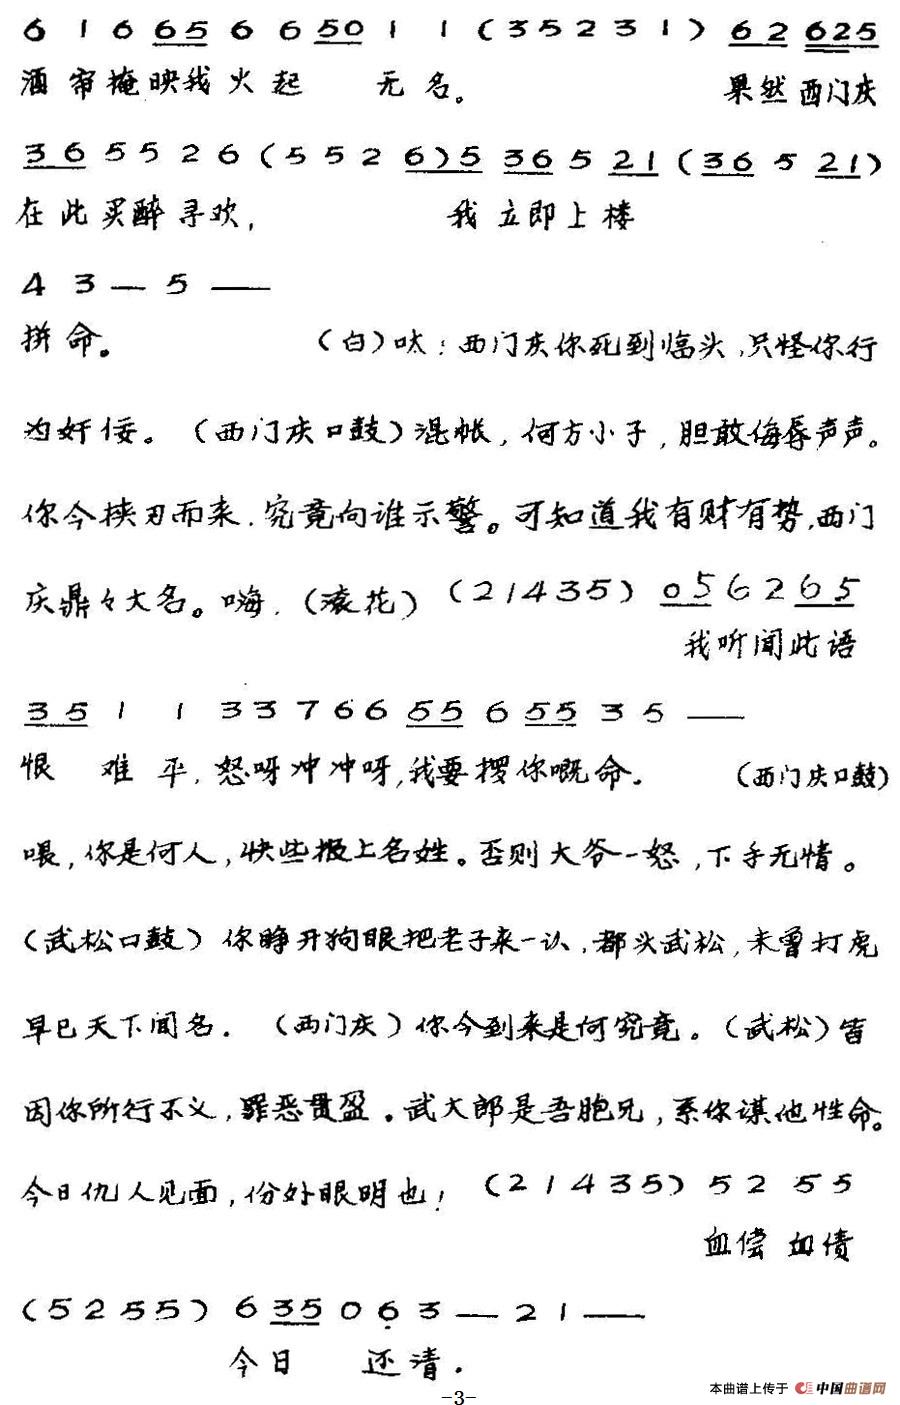 6 1 6 65 6 6 50 1 1 (35231) 62 625
酒帘掩映我火起 无名。 果然西门庆
36 5 5 2 6 (5 5 2 6) 5 36 5 21 (36 5 21)
在此买醉寻欢, 我立即上楼
4 3 — 5 —
拼命。 (白)呔:西门庆你死到临头,只怪你行
为奸佞。(西门庆口鼓)混帐,何方小子,胆敢侮辱声声。
你今挟刃而来.究竟向谁示警。可知道我有财有势,西门
庆鼎々大名。嗨.(滚花) (21435) 05 6 2 65
我听闻此语
35 1 1 3 3 7 6 6 55 6 55 3 5 —
恨 难 平,怒呀冲冲呀,我要攞你嘅命. (西门庆口鼓)
喂,你是何人,快些报上名姓。否则大爷一怒,下手无情。
(武松口鼓) 你睁开狗眼把老子来一认,都头武松,未曾打虎
早已天下闻名. (西门庆)你今到来是何究竟。(武松)皆
因你所行不义,罪恶贯盈。武大郎是吾胞兄,系你谋他性命。
今日仇人见面,份外眼明也! (21435) 5 2 5 5
血偿 血债
(5255) 6 35 0 6 3 — 2 1 —
今日 还清.
-3-
本曲谱上传于 中国曲谱网